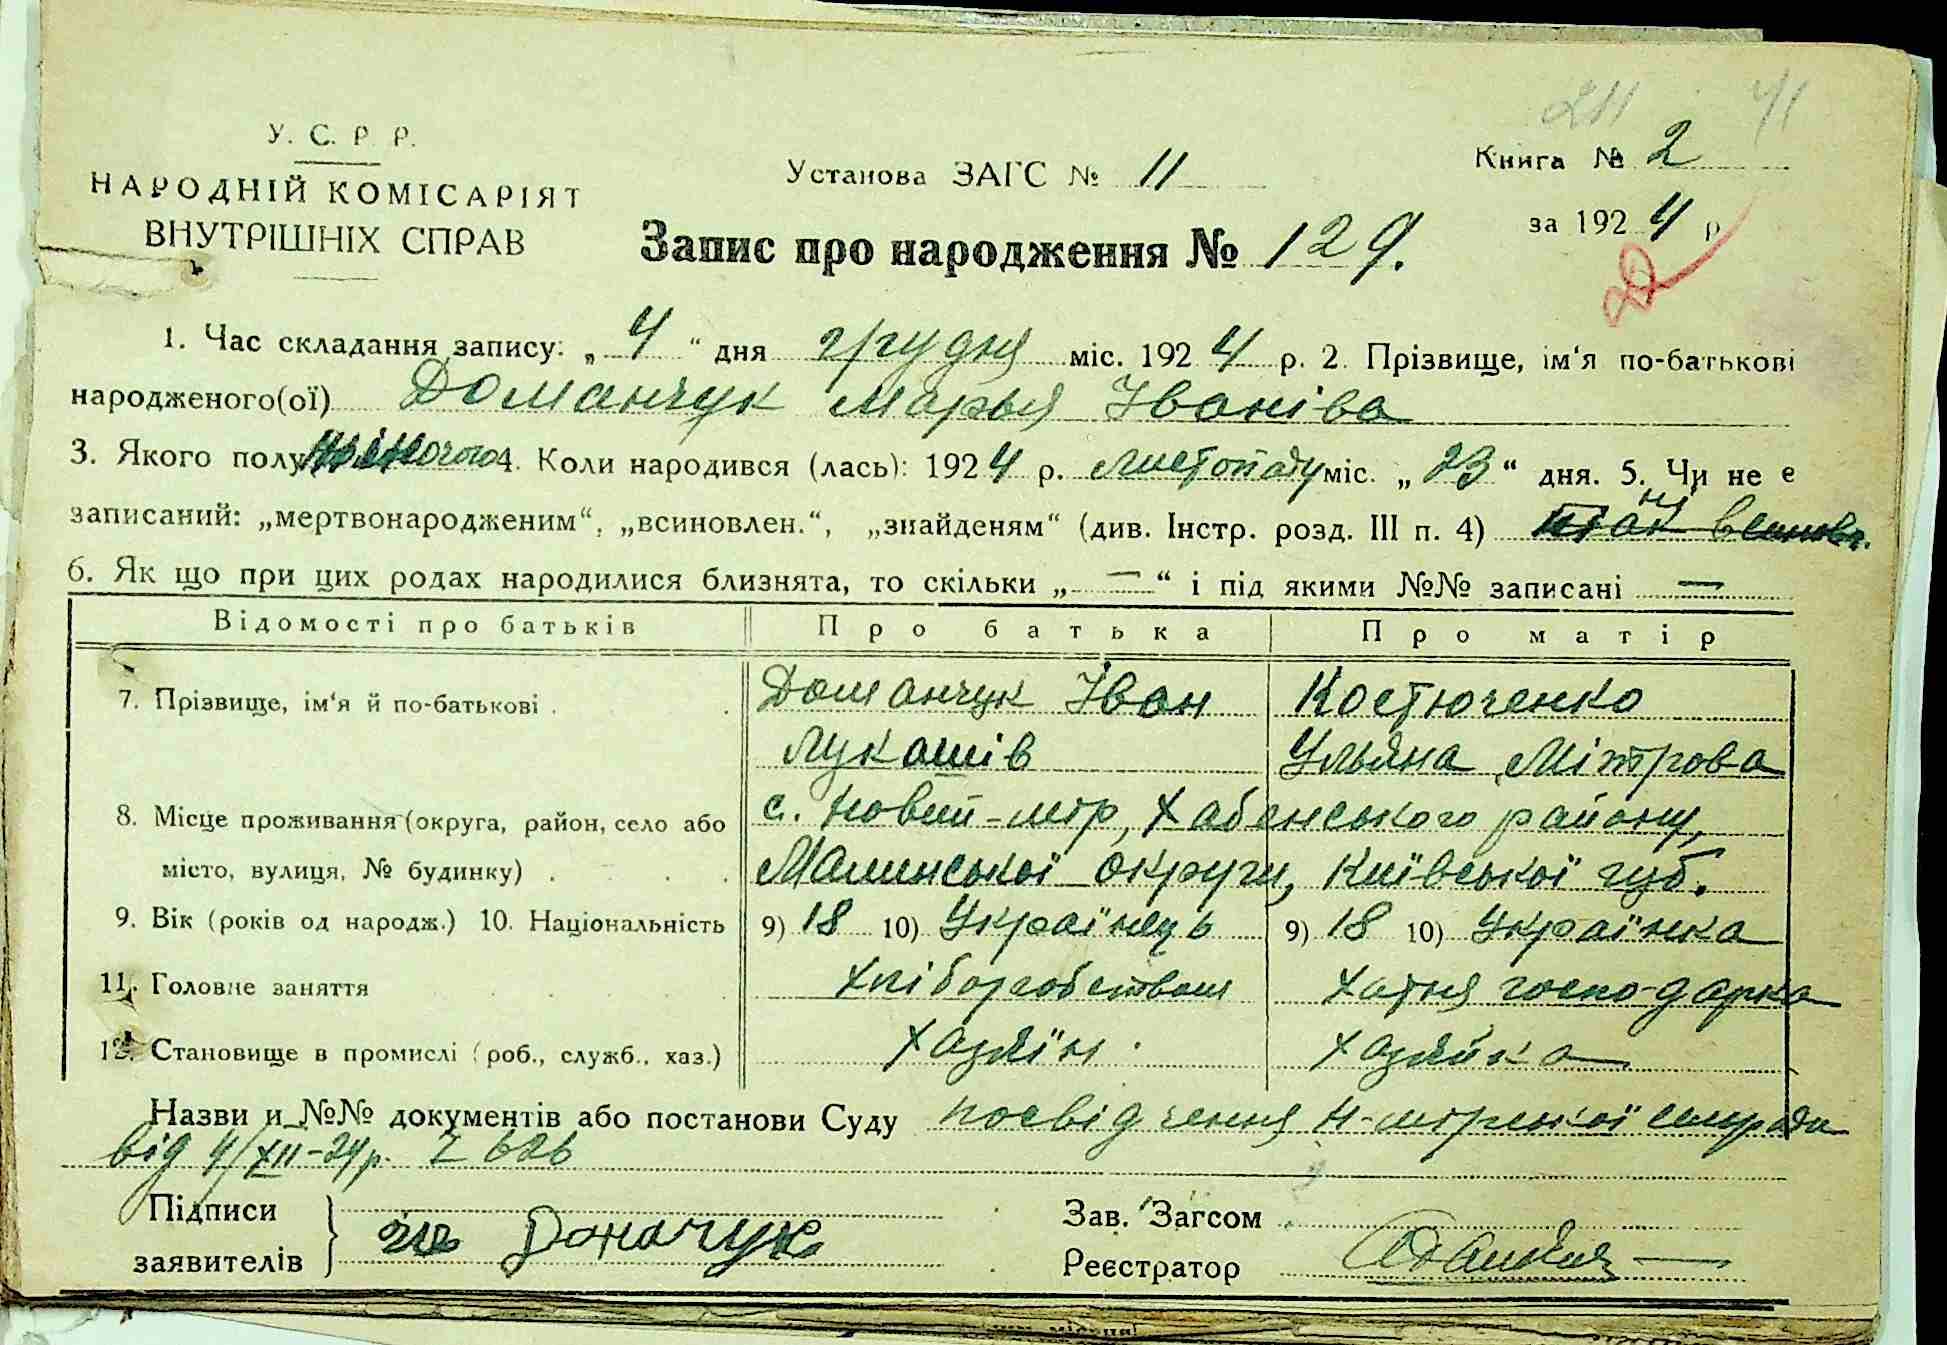 211 41
У. С. Р. Р.
НАРОДНІЙ КОМІСАРІЯТ
ВНУТРІШНІХ СПРАВ
Установа ЗАГС № 11
Книга № 2
за 1924 р
Запис про народження № 129.
1. Час складання запису: „4“ дня грудня міс. 1924 р. 2. Прізвище, ім‘я по-батькові
народженого(ої) Доманчук Марья Іваніва
3. Якого полу жіночого 4. Коли народився (лась): 1924 р. листопаду міс. „23“ дня. 5. Чи не є
записаний: „мертвонародженим“, „всиновлен.“, „знайденям“ (див. Інстр. розд. III п. 4) ні
6. Як що при цих родах народилися близнята, то скільки „—“ і під якими №№ записані —
Відомості про батьків Про батька Про матір
7. Прізвище, ім‘я й по-батькові . . Доманчук Іван Костюченко
Лукашів Ульяна Мітрова
8. Місце проживання (округа, район, село або с. Новий-мір, Хабенського району,
місто, вулиця, № будинку) . . . Малинської округи, Київської губ.
9. Вік (років од народж.) 10. Національність 9) 18 10) Українець 9) 18 10) Українка
11. Головне заняття хліборобством хатня господарка
12. Становище в промислі (роб., служб., хаз.) хазяїн. хазяйка
Назви и №№ документів або постанови Суду посвідчення Н-мірської сельради
від 4/XII-24р.
Підписи
заявителів Доначук
Зав. Загсом
Реєстратор